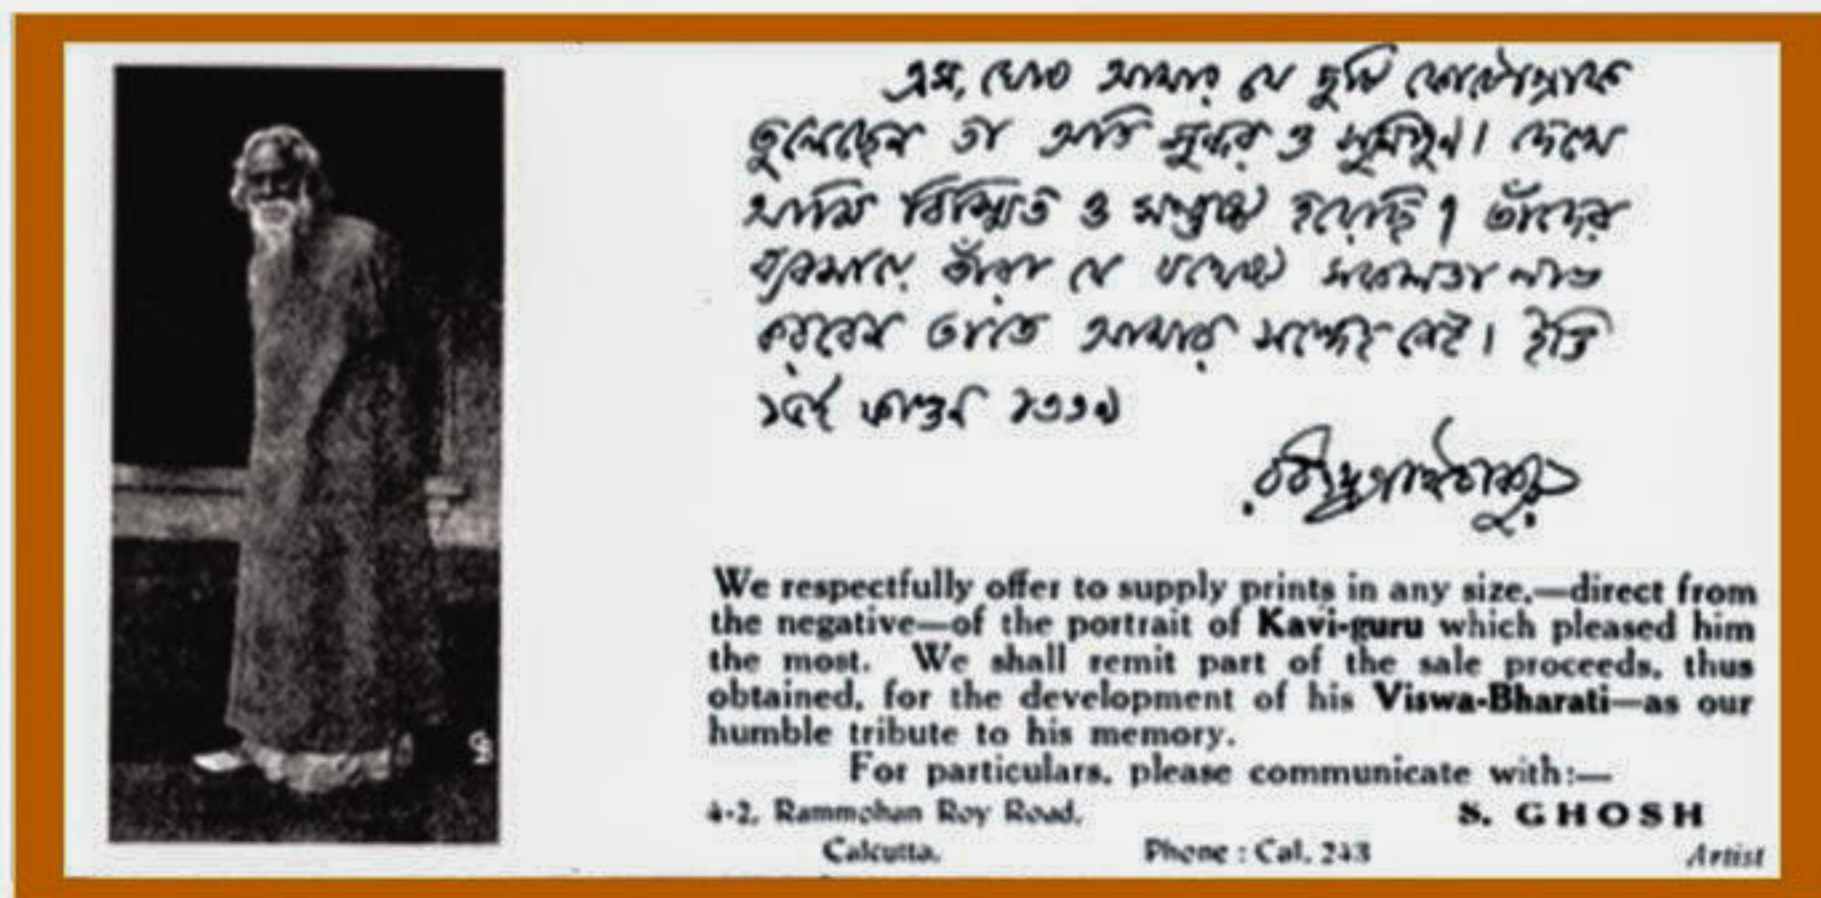 এস, ঘোষ আমার যে দুটি ফোটোগ্রাফ
তুলেছেন তা অতি সুন্দর ও সুনিপুণ। দেখে
আমি বিস্মিত ও সন্তুষ্ট হয়েছি। তাঁদের
ব্যবসায়ে তাঁরা যে যথেষ্ট সফলতা লাভ
করবেন তাতে আমার সন্দেহ নেই। ইতি
ফাল্গুন
রবীন্দ্রনাথ ঠাকুর
We respectfully offer to supply prints in any size,—direct from
the negative—of the portrait of Kavi-guru which pleased him
the most. We shall remit part of the sale proceeds, thus
obtained, for the development of his Viswa-Bharati—as our
humble tribute to his memory.
For particulars, please communicate with:—
4-2, Rammohan Roy Road, S. GHOSH
Calcutta. Phone : Cal. Artist